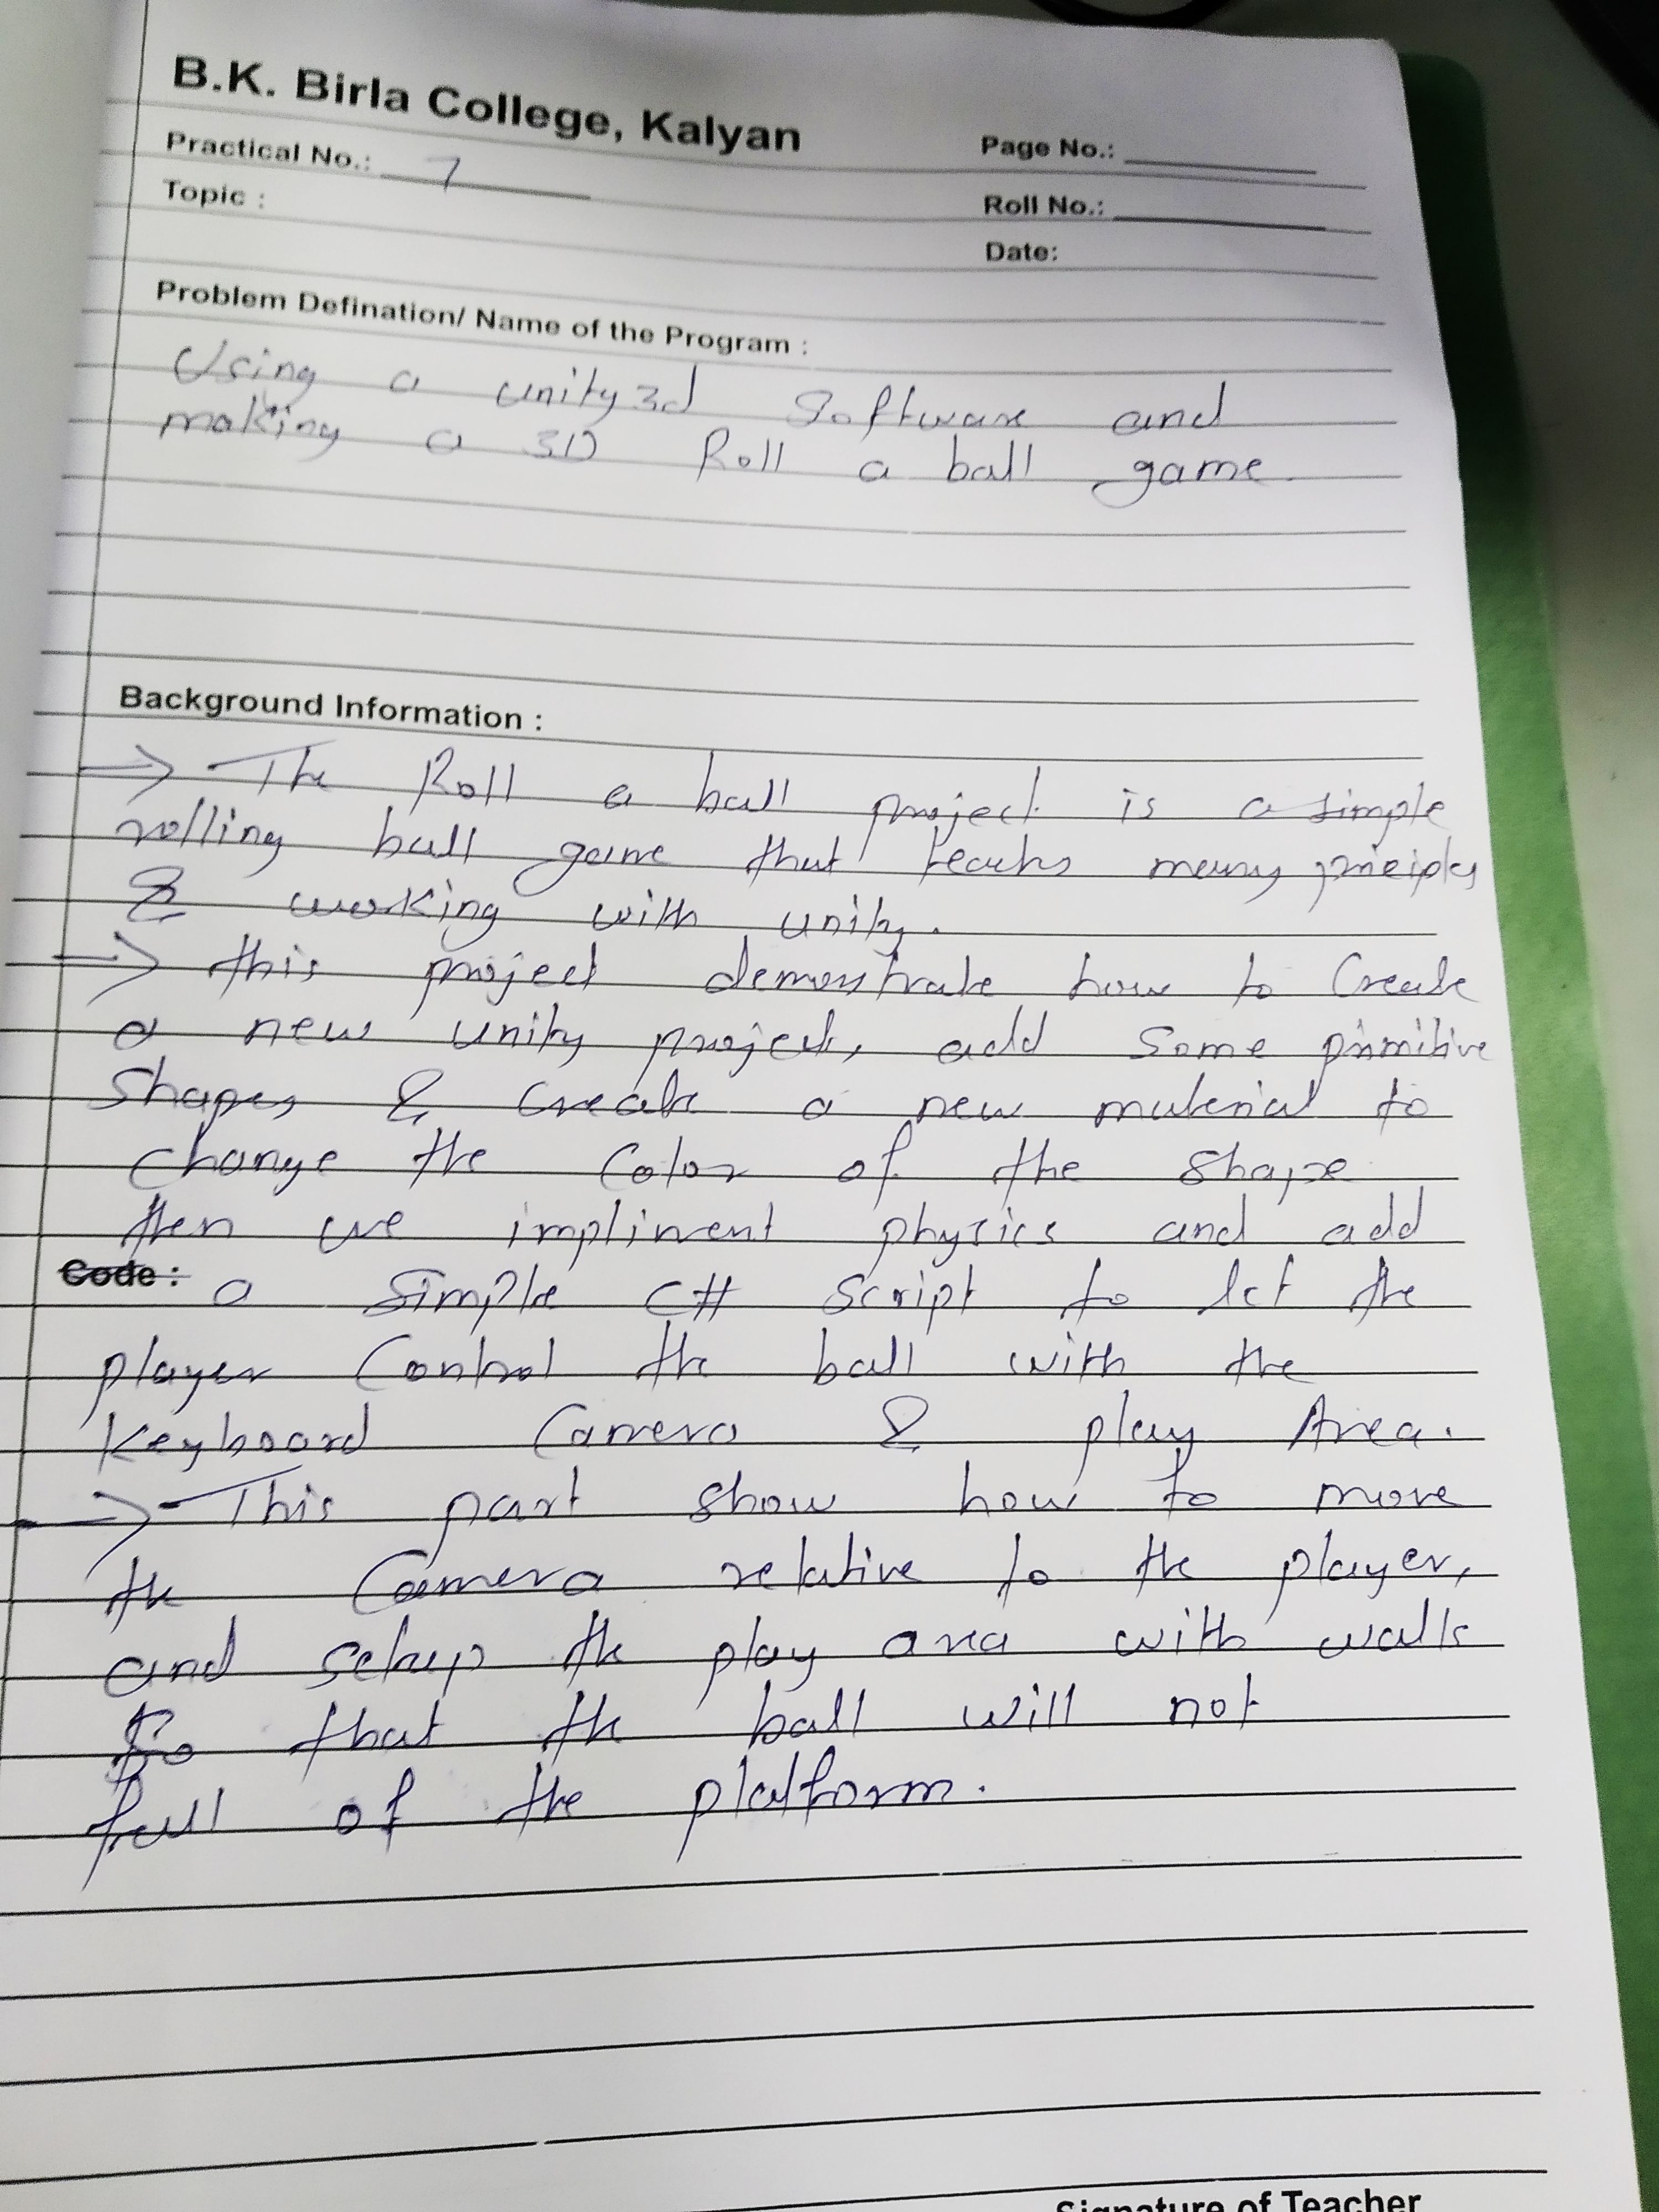 B.K. Birla College, Kalyan
Practical No.: 7
Page No.:
Topic :
Roll No.:
Date:
Problem Defination/ Name of the Program :
Using a unity3d Software and
making a 3D Roll a ball game.
Background Information :
→ The Roll a ball project is a simple
rolling ball game that many
& working with unity.
→ this project demonstrate how to Create
a new unity project, add some primitive
shapes & create a new material to
change the Color of the shape
then we impliment physics and add
Code :
a Simple C# script to let the
player Control the ball with the
Keyboard Camera & play Area.
→ This part show how to move
the Camera relative to the player,
and setup the play area with walls
So that the ball will not
fall of the platform.
Signature of Teacher